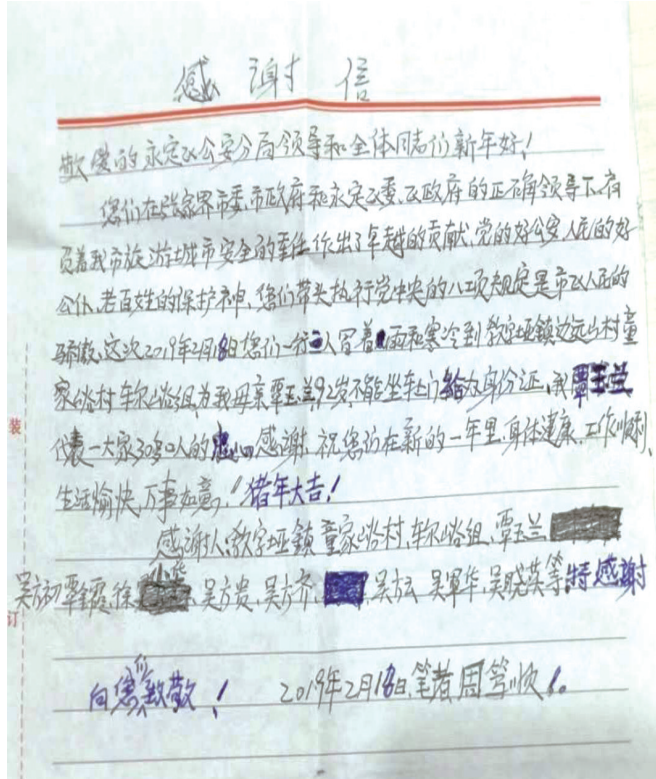 感谢信
敬爱的永定区公安分局领导和全体同志们新年好！
您们在张家界市委、市政府和永定区委、区政府的正确领导下、肩
负着我市旅游城市安全的重任，作出了卓越的贡献、党的好公安、人民的好
公仆、老百姓的保护神、您们带头执行党中央的八项规定是市区人民的
骄傲、这次2019年2月18日您们一行三人冒着雨和寒冷到教字垭镇边远山村童
家峪村车尔峪组、为我母亲覃玉兰92岁、不能坐车上门给办身份证、我覃玉兰
代表一大家30多口人的忠心感谢、祝您们在新的一年里、身体健康、工作顺利、
生活愉快、万事如意！猪年大吉！
感谢人：教字垭镇童家峪村、车尔峪组、覃玉兰
吴方初 覃金霞、徐小华、吴方贵、吴方齐、吴方云、吴军华、吴晓英等、特感谢
向您们致敬！ 2019年2月18日、笔者周笃顺！
装
订